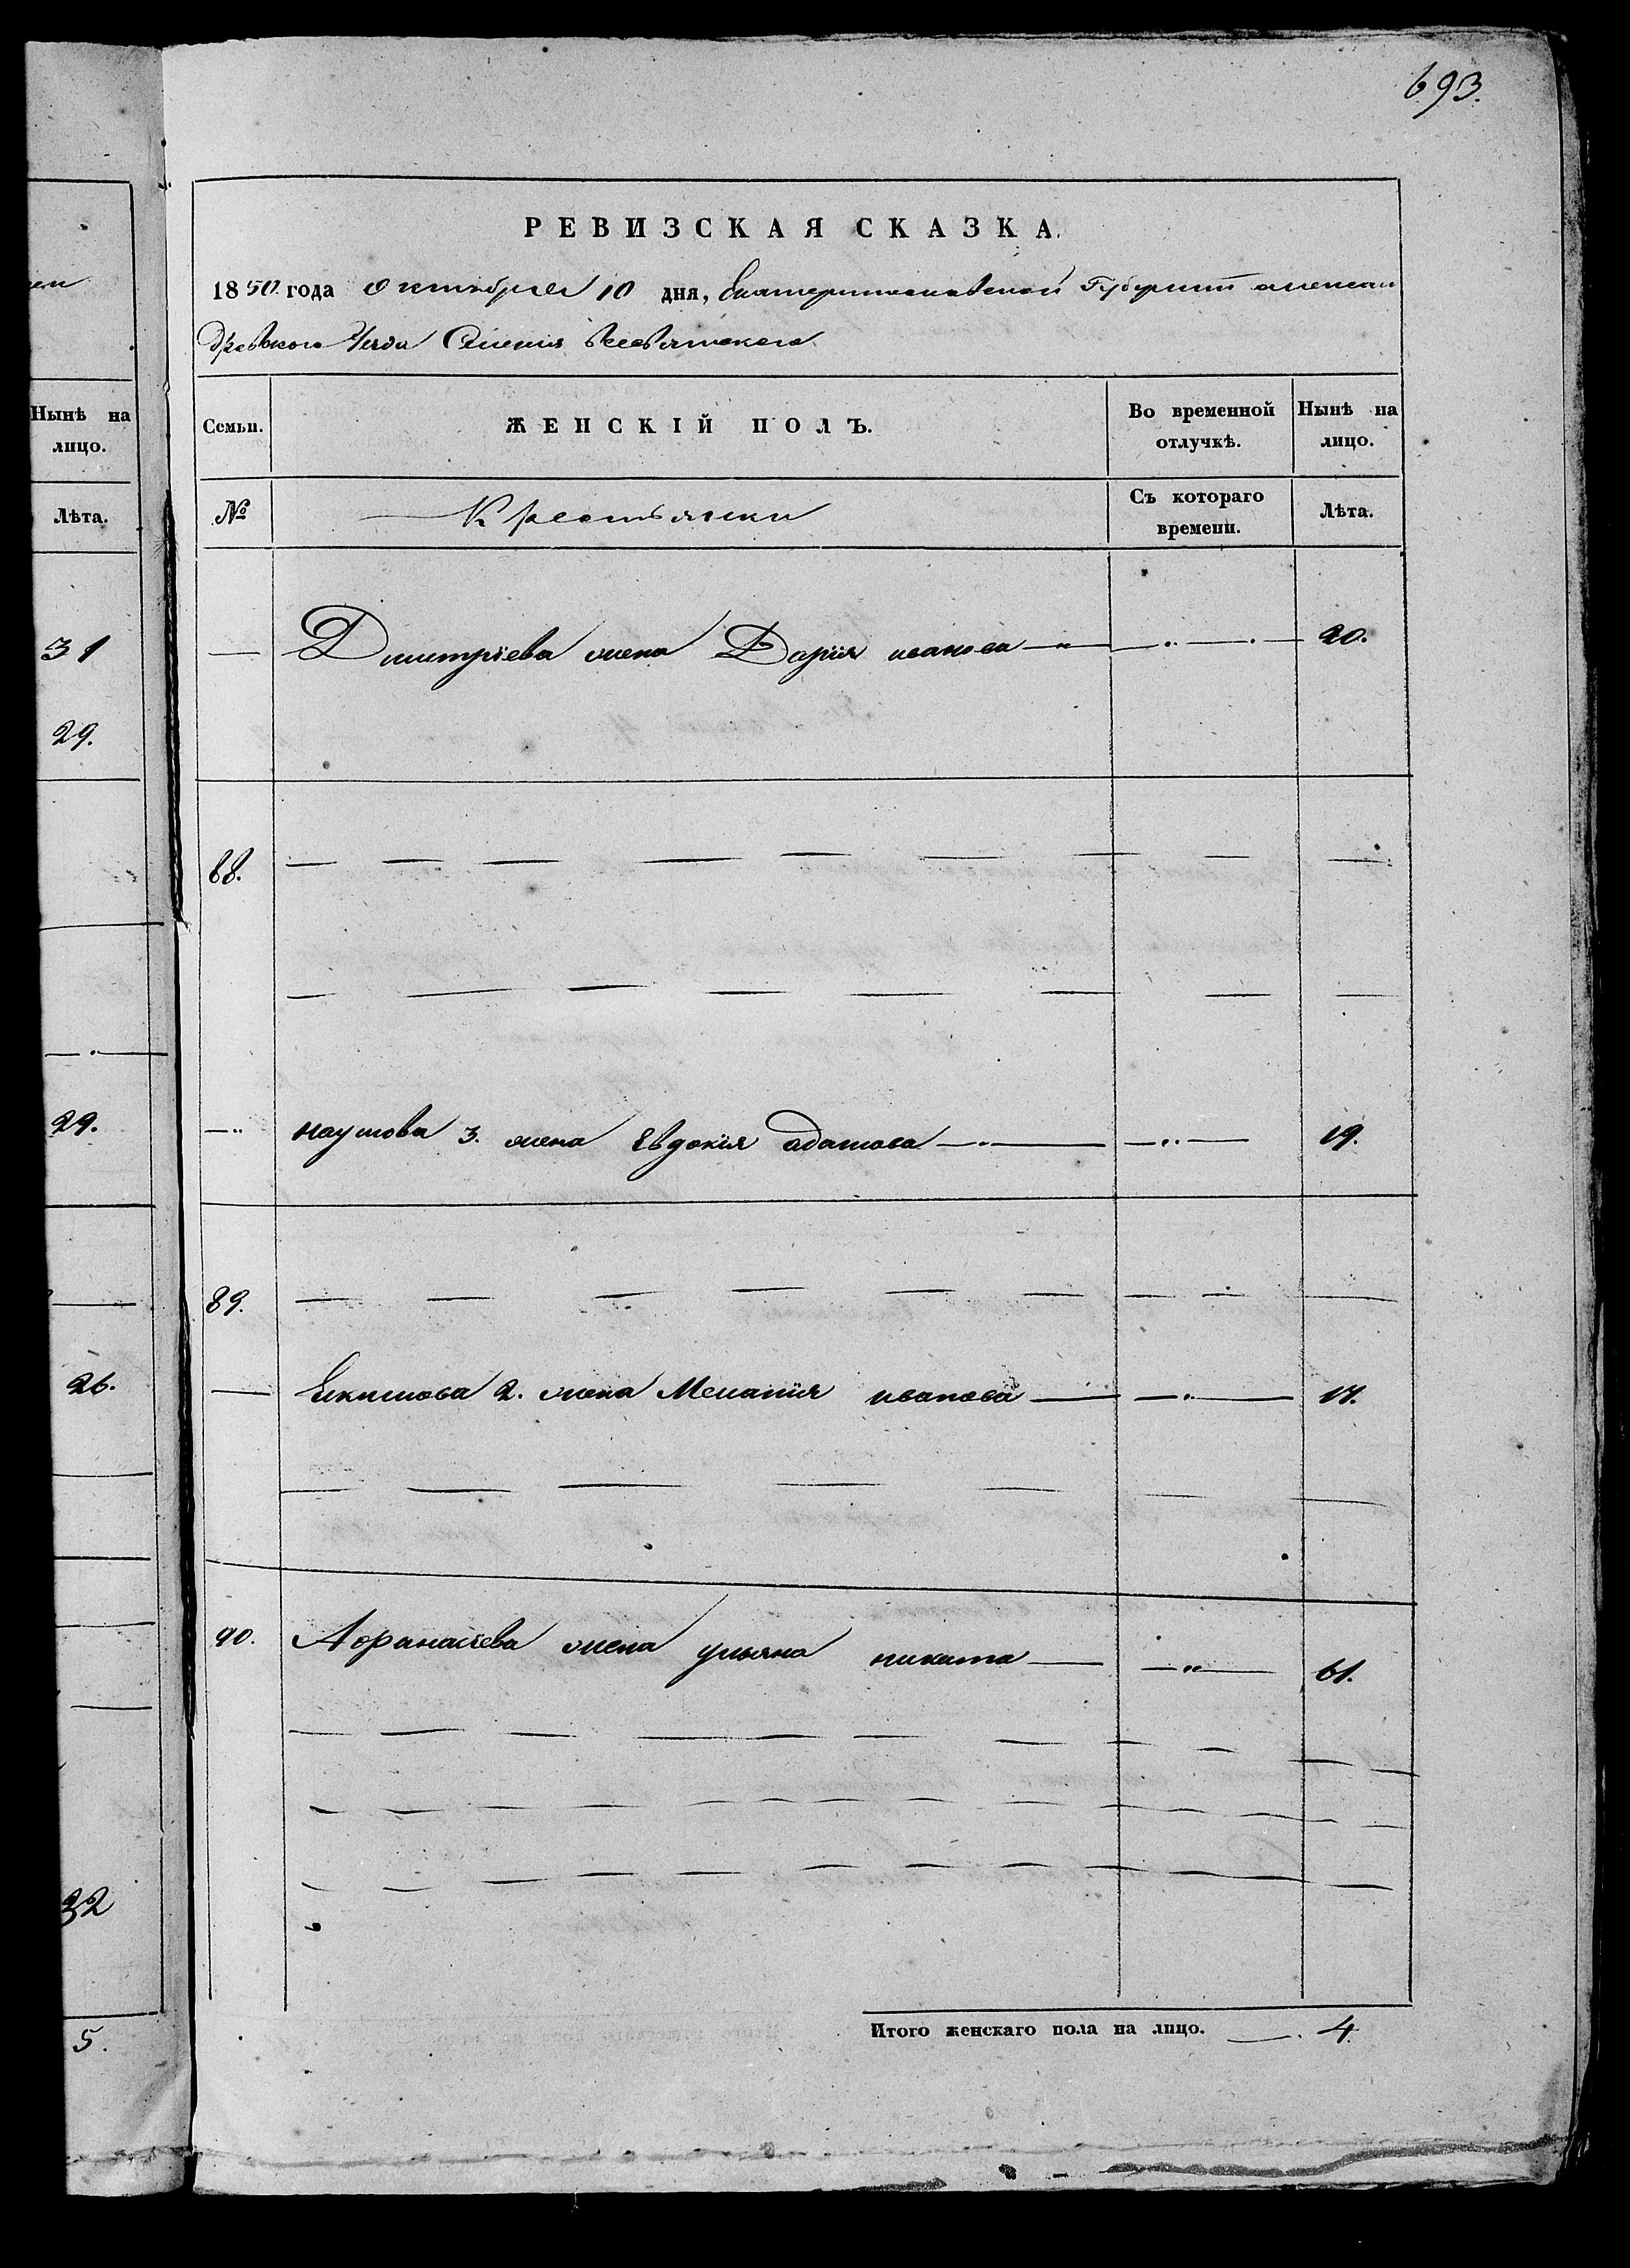 693.
РЕВИЗСКАЯ СКАЗКА.
1850 года октября 10 дня, Екатеринославской Губернии алексан
дровского Уезда Селения всесвятского
Семьи. ЖЕНСКІЙ ПОЛЪ. Во временной отлучкѣ. Нынѣ на лицо.
№ Крестьянки Съ котораго времени. Лѣта.
Дмитріева жена Дарія иванова 20.
88.
наумова 3. жена Евдокія адамова 19.
89.
Екимова 2. жена Меланія иванова 17.
90. Афранасіева жена ульяна никита 61.
Итого женскаго пола на лицо. 4.
Нынѣ на
лицо.
Лѣта.
31
29.
29.
26.
32
5.